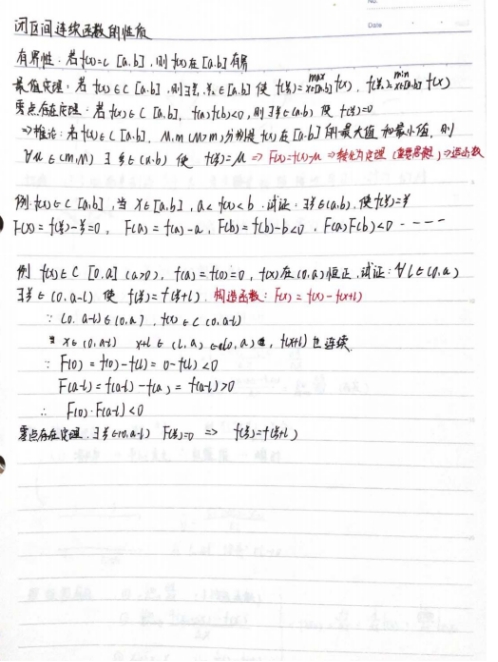 闭区间连续函数的性质
有界性:若f(x)∈C[a.b],则f(x)在[a.b]有界
最值定理:若f(x)∈C[a.b],则∃ξ1.ξ2∈[a.b]使f(ξ1)=max x∈[a.b] f(x),f(ξ2)=min x∈[a.b] f(x)
零点存在定理:若f(x)∈C[a.b],f(a)f(b)<0,则∃ξ∈(a.b)使f(ξ)=0
⇒推论:若f(x)∈C[a.b],M,m(M>m)分别是f(x)在[a.b]的最大值和最小值,则
∀μ∈(m,M) ∃ξ∈(a.b)使f(ξ)=μ ⇒F(x)=f(x)-μ ⇒转化为定理(重要思想)⇒造函数
例f(x)∈C[a.b],当x∈[a.b],a<f(x)<b.试证:∃ξ∈(a.b),使f(ξ)=ξ
F(x)=f(ξ)-ξ=0,F(a)=f(a)-a,F(b)=f(b)-b<0,F(a)F(b)<0----
例 f(x)∈C[0.a](a>0),f(a)=f(0)=0,f(x)在(0.a)恒正.试证:∀l∈(0.a)
∃ξ∈(0.a-l)使f(ξ)=f(ξ+l).构造函数:F(x)=f(x)-f(x+l)
∵(0.a-l)∈(0.a),f(x)∈C(0.a-l)
x∈(0.a-l) x+l∈(l.a)∈(0.a),f(x+l)也连续
∵F(0)=f(0)-f(l)=0-f(l)<0
F(a-l)=f(a-l)-f(a)=f(a-l)>0
∴F(0)·F(a-l)<0
零点存在定理.∃ξ∈(0.a-l) F(ξ)=0 ⇒ f(ξ)=f(ξ+l)